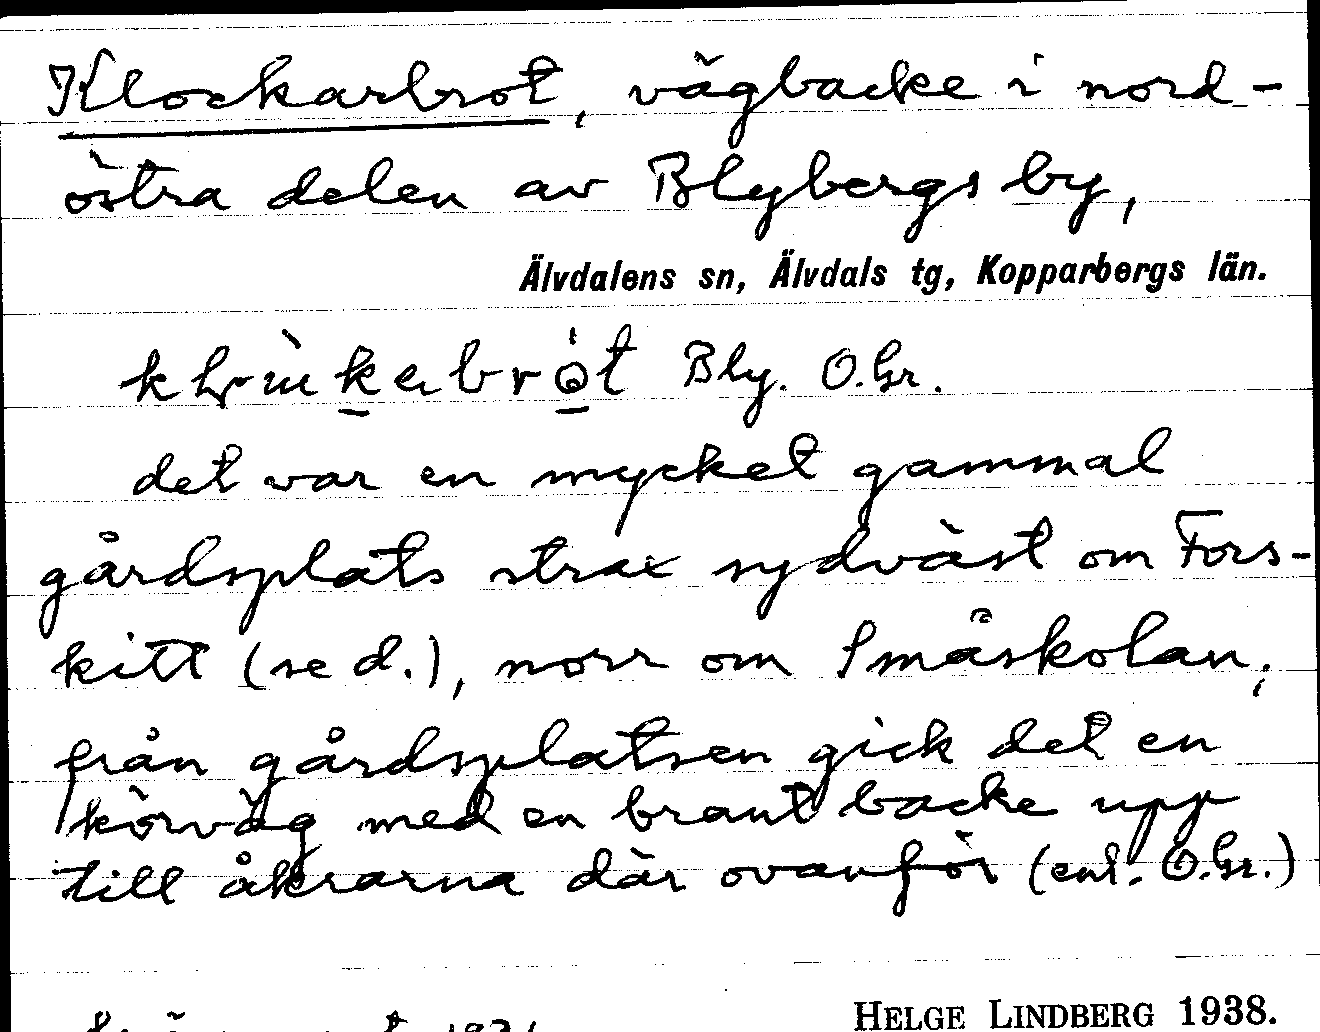 Klockarbrot, vägbacke i nord-
östra delen av Blybergs by,
Älvdalens sn, Älvdals tg, Kopparbergs län.
Bly. O.Gr.
det var en mycket gammal
gårdsplats strax sydväst om Fors-
kitt (se d.), norr om Småskolan;
från gårdsplatsen gick det en
körväg med en brant backe upp
till åkrarna där ovanför (enl. O.Gr.)
HELGE LINDBERG 1938.